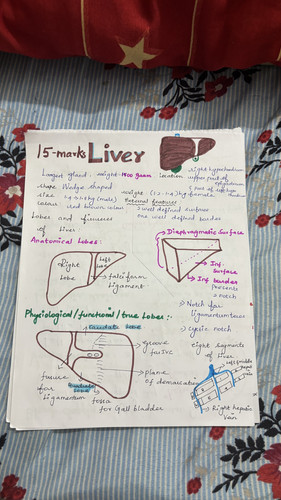 15-marks Liver
Largest gland: weight-1400 gram
Location
right hypochondrium
upper part of epigastrium
& part of left hypo
shape Wedge shaped
size
External features
colour
red brown
2 well defined surfaces
one well defined border
Lobes and fissures
of liver:
Anatomical lobes:
Right
Lobe
Left
falciform
ligament
Diaphragmatic Surface
Inf.
surface
Inf border
presents
notch
→ Notch for
ligamentum teres
→ cystic notch
Physiological/functional/true lobes:-
caudate lobe
groove
for IVC
plane
of demarcation
fissure
for
ligamentum
quadrate
lobe
fossa
for Gall bladder
eight segments
of liver
Left
hepatic
vein
Right hepatic
vein